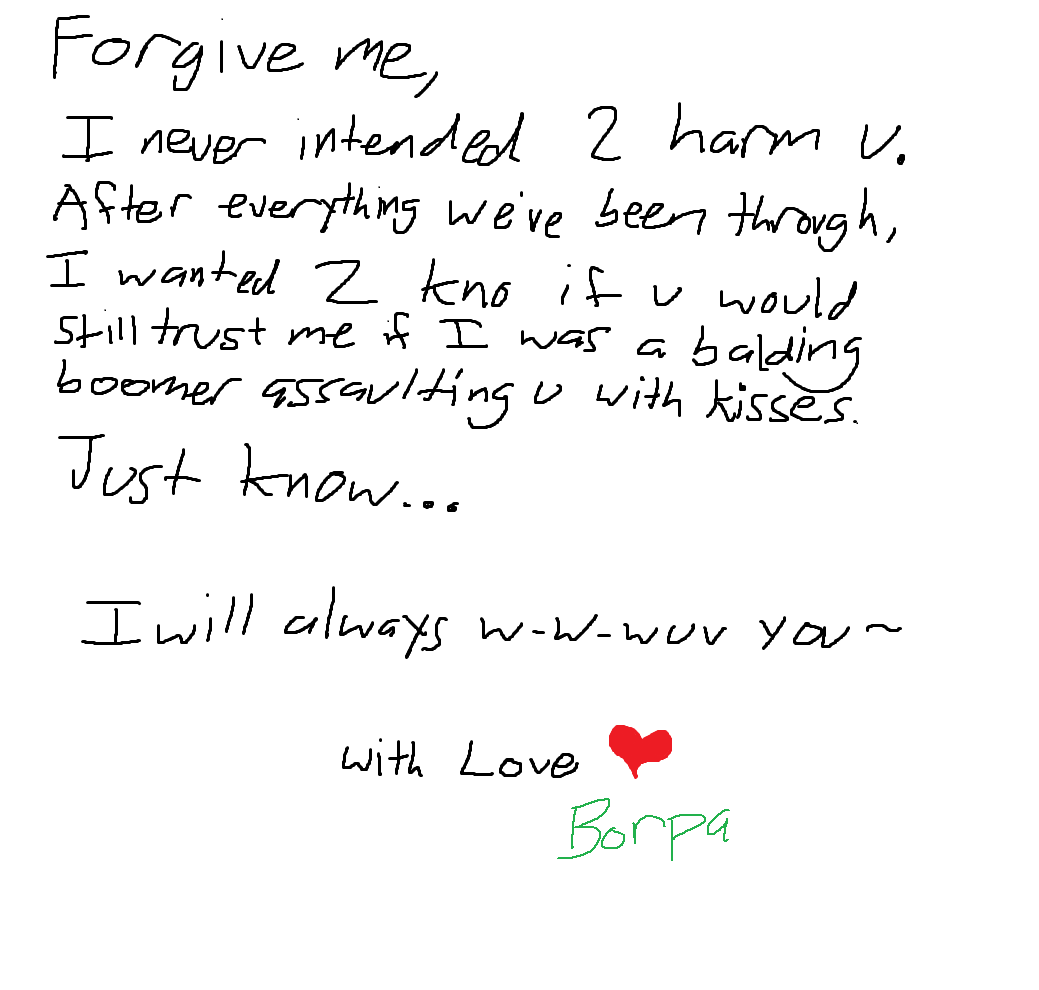 Forgive me,
I never intended 2 harm u.
After everything we've been through,
I wanted 2 kno if u would
still trust me if I was a balding
boomer assaulting u with kisses.
Just know...
I will always w-w-wuv you~
with Love ❤
Borpa